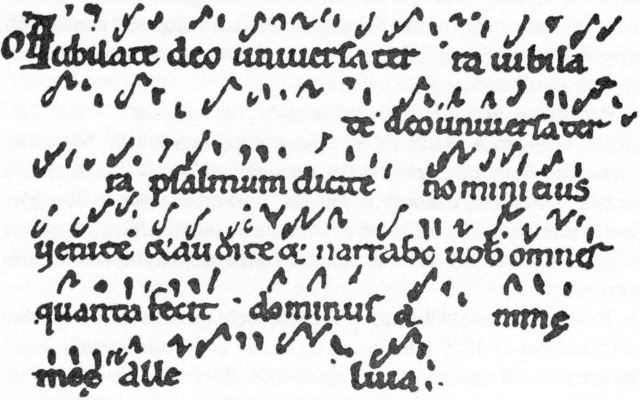 Of Iubilate deo universa ter ra iubila
te deo universa ter
ra psalmum dicite nomini eius
venite & audite & narrabo vob omnes
quanta fecit dominus anime
meę alle luia.